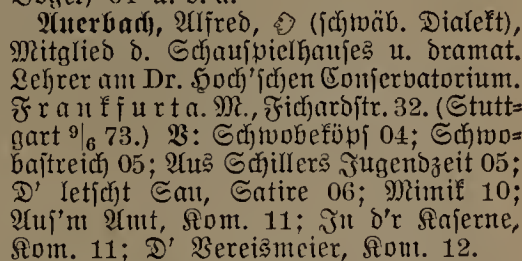 Vogel) 01 u. v. a.
Auerbach, Alfred, (schwäb. Dialekt),
Mitglied d. Schauspielhauses u. dramat.
Lehrer am Dr. Hoch'schen Conservatorium.
Frankfurt a. M., Fichardstr. 32. (Stutt=
gart 9|6 73.) V: Schwobeköpf 04; Schwo=
bastreich 05; Aus Schillers Jugendzeit 05;
D' letscht Sau, Satire 06; Mimik 10;
Auf'm Amt, Kom. 11; In d'r Kaserne,
Kom. 11; D' Vereismeier, Kom. 12.